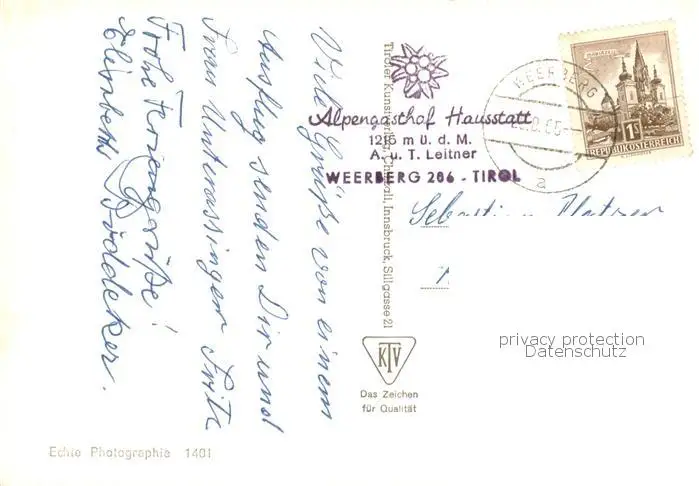 Viele Grüße von einem
Ausflug senden Dir und
Frau Unterassinger Fritz
Frohe Feriengrüße!
Elisabeth Böddeker.
Tiroler Kunstverlag Chizzali, Innsbruck, Sillgasse 21
Alpengasthof Hausstatt
1215 m ü. d. M.
A. u. T. Leitner
WEERBERG 206 - TIROL
WEERBERG
a
1S
REPUBLIK ÖSTERREICH
Sebastian
privacy protection
Datenschutz
KTV
Das Zeichen
für Qualität
Echte Photographie 1401